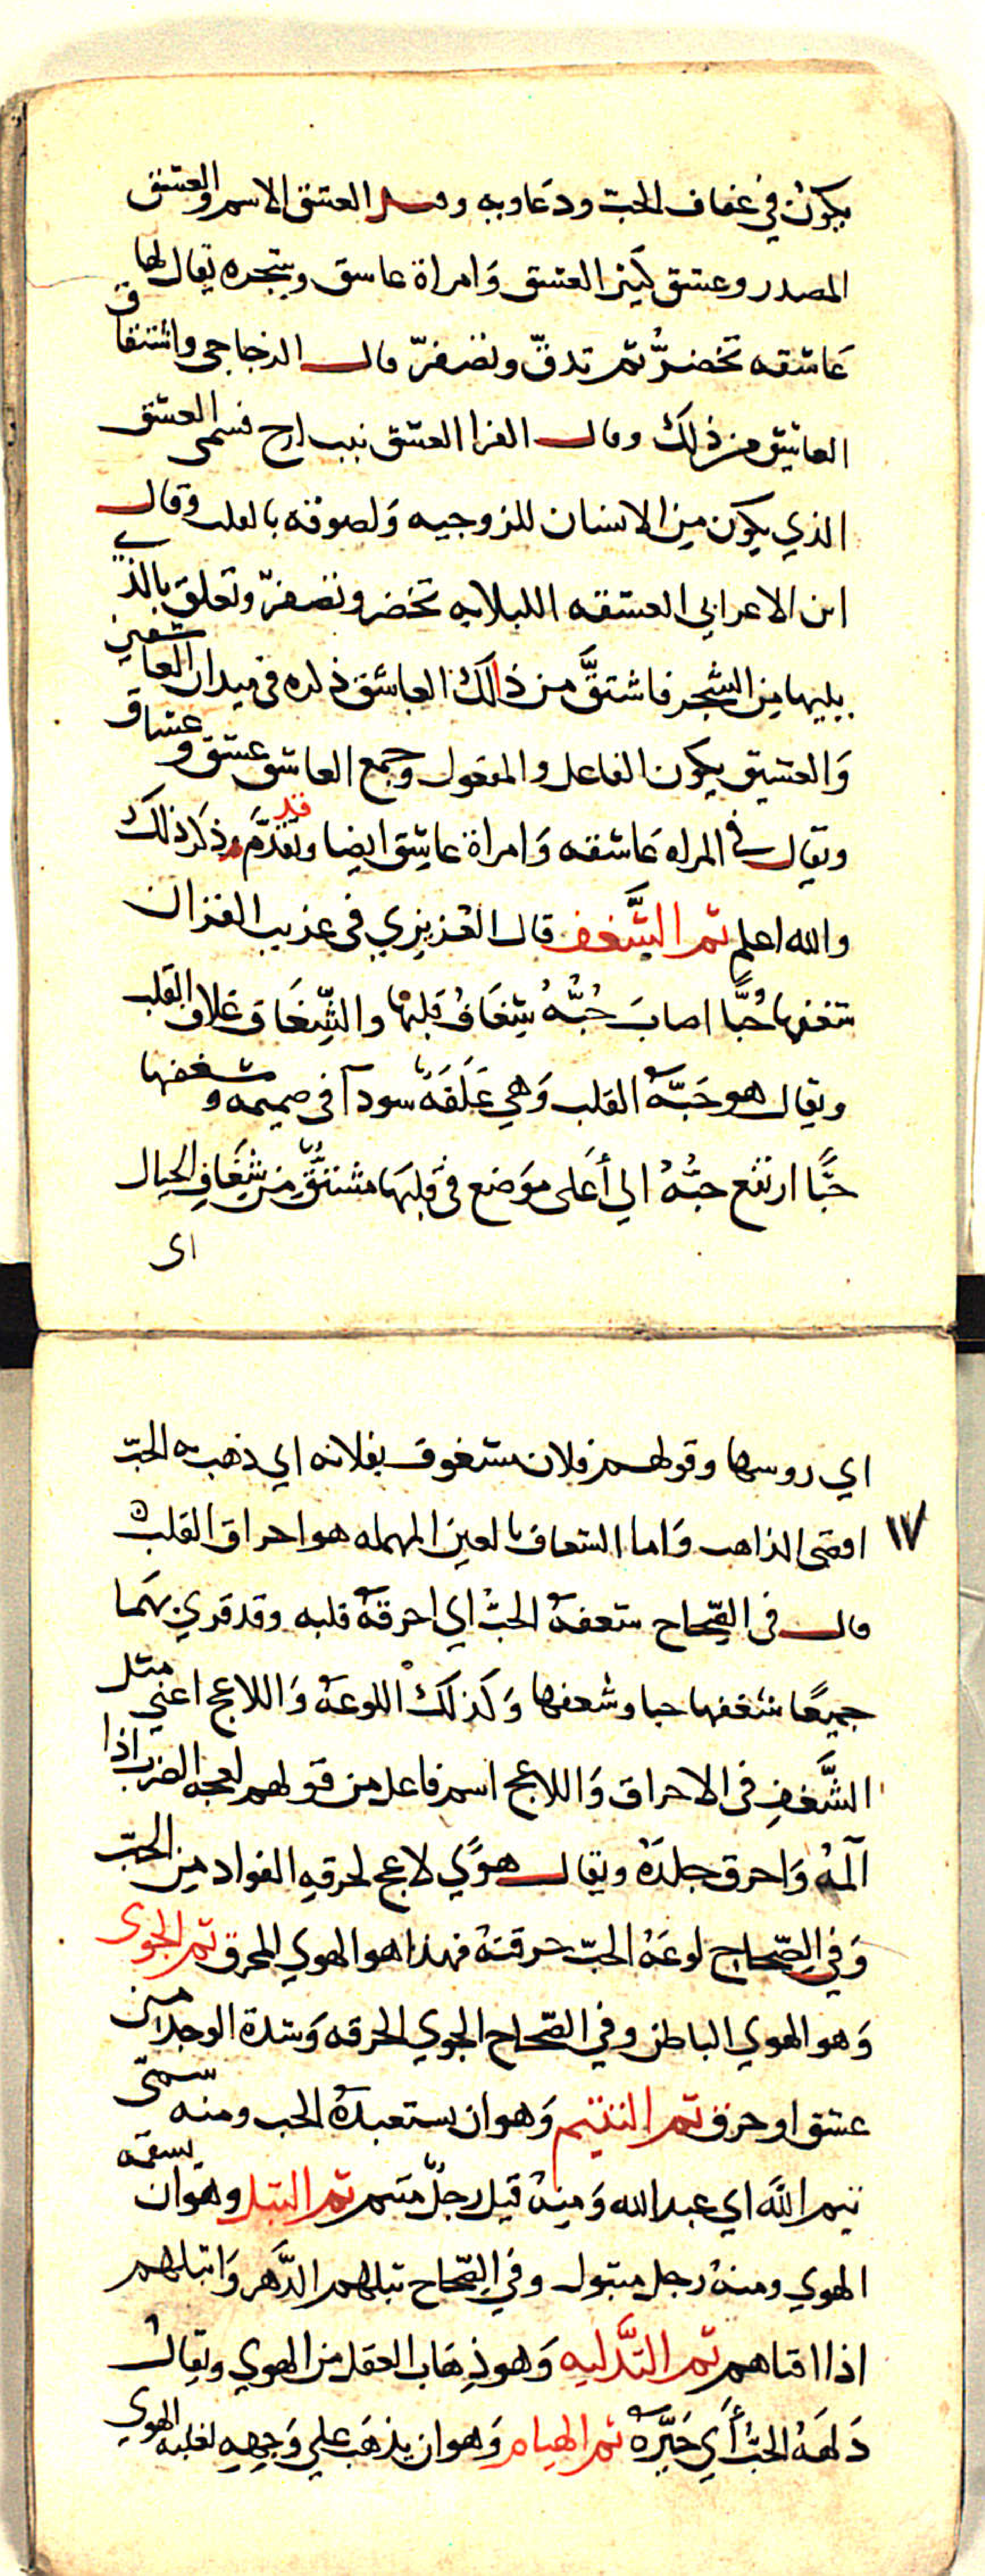 يكون في عفاف الحبّ ودعاوبه وقيل العشق الاسم والعشق
المصدر وعشق كثير العشق وَامراة عاسق وشجره يقال لها
عَاشقه تخضرُّ ثم تدقّ وتصفرّ قال الزجاجي واشتقاق
العاشق من ذلك وقال الفرا العشق نبت لزج فسمي العشق
الذي يكون مِن الانسان للزوجيه وَلصوقه بالقلب وقال
ابن الاعرابي العشقه اللبلابه تخضر وتصفرّ وتعلق بالذي
يليها مِن الشجر فاشتقَّ من ذالكَ العاشق ذكره في ميدان العاشقين
وَالعشيق يكون الفاعل والمفعول وجمع العاشق عشق وعشاق
ويقال في المراه عَاشقه وَامراة عاشِق ايضا وقد تقدَّم ذكر ذلك
والله اعلم ثم الشَّغف قال العُزيزي في غريب القران
شغفها حُبًّا اصابَ حُبُّهُ شِغَافُ قلبها والشِّغَاف غلاف القلب
ويقال هو حَبّهُ القلب وَهي عَلَقَهٌ سودآ في صميمه وشغفها
حبًّا ارتفع حبُّهُ الي أَعَلى موَضع في قلبَها مشتقٌّ مِن شِغَافِ الجبال
اى
اي روسها وقولهم فلان مشغوف بفلانه اي ذهب به الحبّ
١٧ اقصَى المذاهب وَاما الشعاف بالعين المهمله هو احراق القلب
قال في الصِّحاح شعفهُ الحبُّ اي احرقهُ قلبه وقد قري بهَما
جميعًا شغفها حبا وشعفها وَكذلكَ اللوعَهُ وَاللاعج اعني مثل
الشَّغفِ في الاحراق وَاللاعج اسم فاعل من قولهم لعجه الضرب اذا
آلمهُ وَاحرق جلدَهُ ويقال هوًي لاعج لحرقهِ الفواد مِن الحبّ
وَفي الصِّحاح لوعَهُ الحبّ حرقتهُ فهذا هو الهوي المحرق ثم الجوى
وَهو الهوي الباطن وفي الصّحاح الجوي الحرقه وَشدة الوجد من
عشق او حزن ثم التتيم وَهو ان يستعبدهُ الحب ومنه سمّى
تيم اللَّه اي عبد الله وَمِنهُ قيل رجلٌ متيم ثم التبل وهَو ان يسقمه
الهوي ومنهُ رجل متبول وفي الصّحاح تبلهم الدَّهر وَاتبلهم
اذا افناهم ثم التَّدليه وَهو ذهَاب العقل من الهوي ويقال
دَلهَهُ الحبُّ أَي حَيَّرهُ ثم الهيام وَهو ان يذهَب علي وَجهِهِ لغلبه الهوى